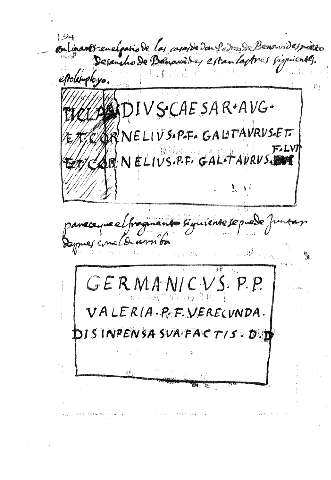 en el patio de las casas de don Pedro de Benavides nieto
De sancho de Benavides estan las tres siguientes.
TI CLA DIVS·CAESAR·AVG·
ET·COR NELIVS·P·F·GAL·TAURUS·ET
F·LVI
ET·COR NELIVS·P·F·GAL·TAVRVS
parece que el fragmento siguiente se puede Juntar
de arriba
GERMANICVS·P·P
VALERIA·P·F·VERECVNDA·
DISINPENSA SVA·FACTIS·D·D